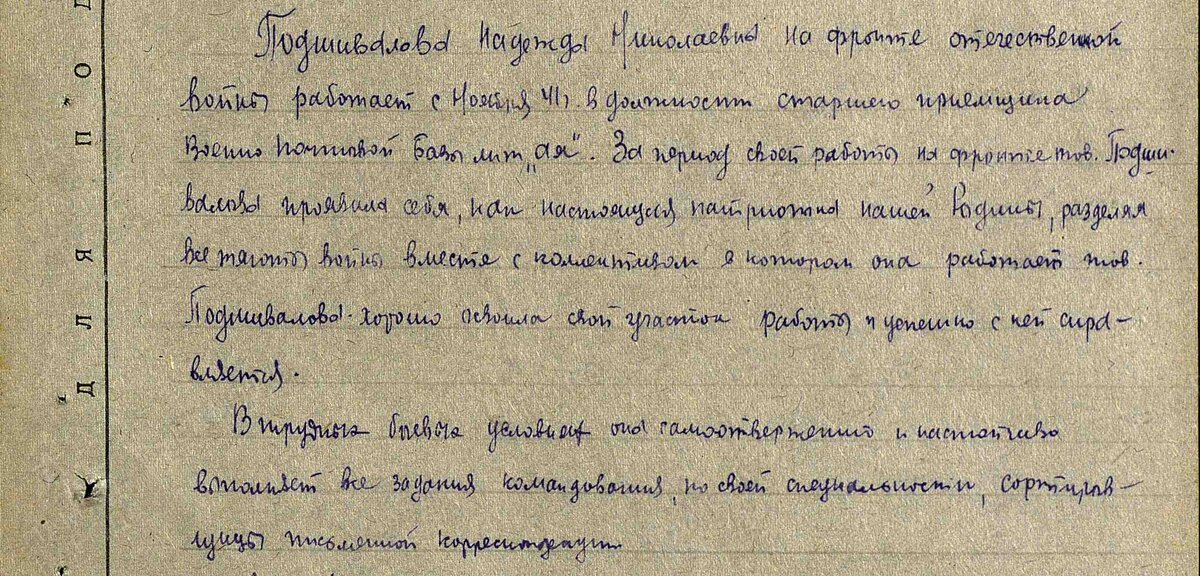 Подшивалова Надежда Николаевна на фронте отечественной
войны работает с Ноября 41г. в должности старшего приемщика
Военно Почтовой Базы лит „ая“. За период своей работы на фронте тов. Подши-
валова проявила себя, как настоящая патриотка нашей Родины, разделяя
все тяготы войны вместе с коллективом в котором она работает тов.
Подшивалова хорошо освоила свой участок работы и успешно с ней спра-
вляется.
В трудных боевых условиях она самоотверженно и настойчиво
выполняет все задания командования, по своей специальности, сортиров-
щицы письменной корреспонденции
ДЛЯ ПОД